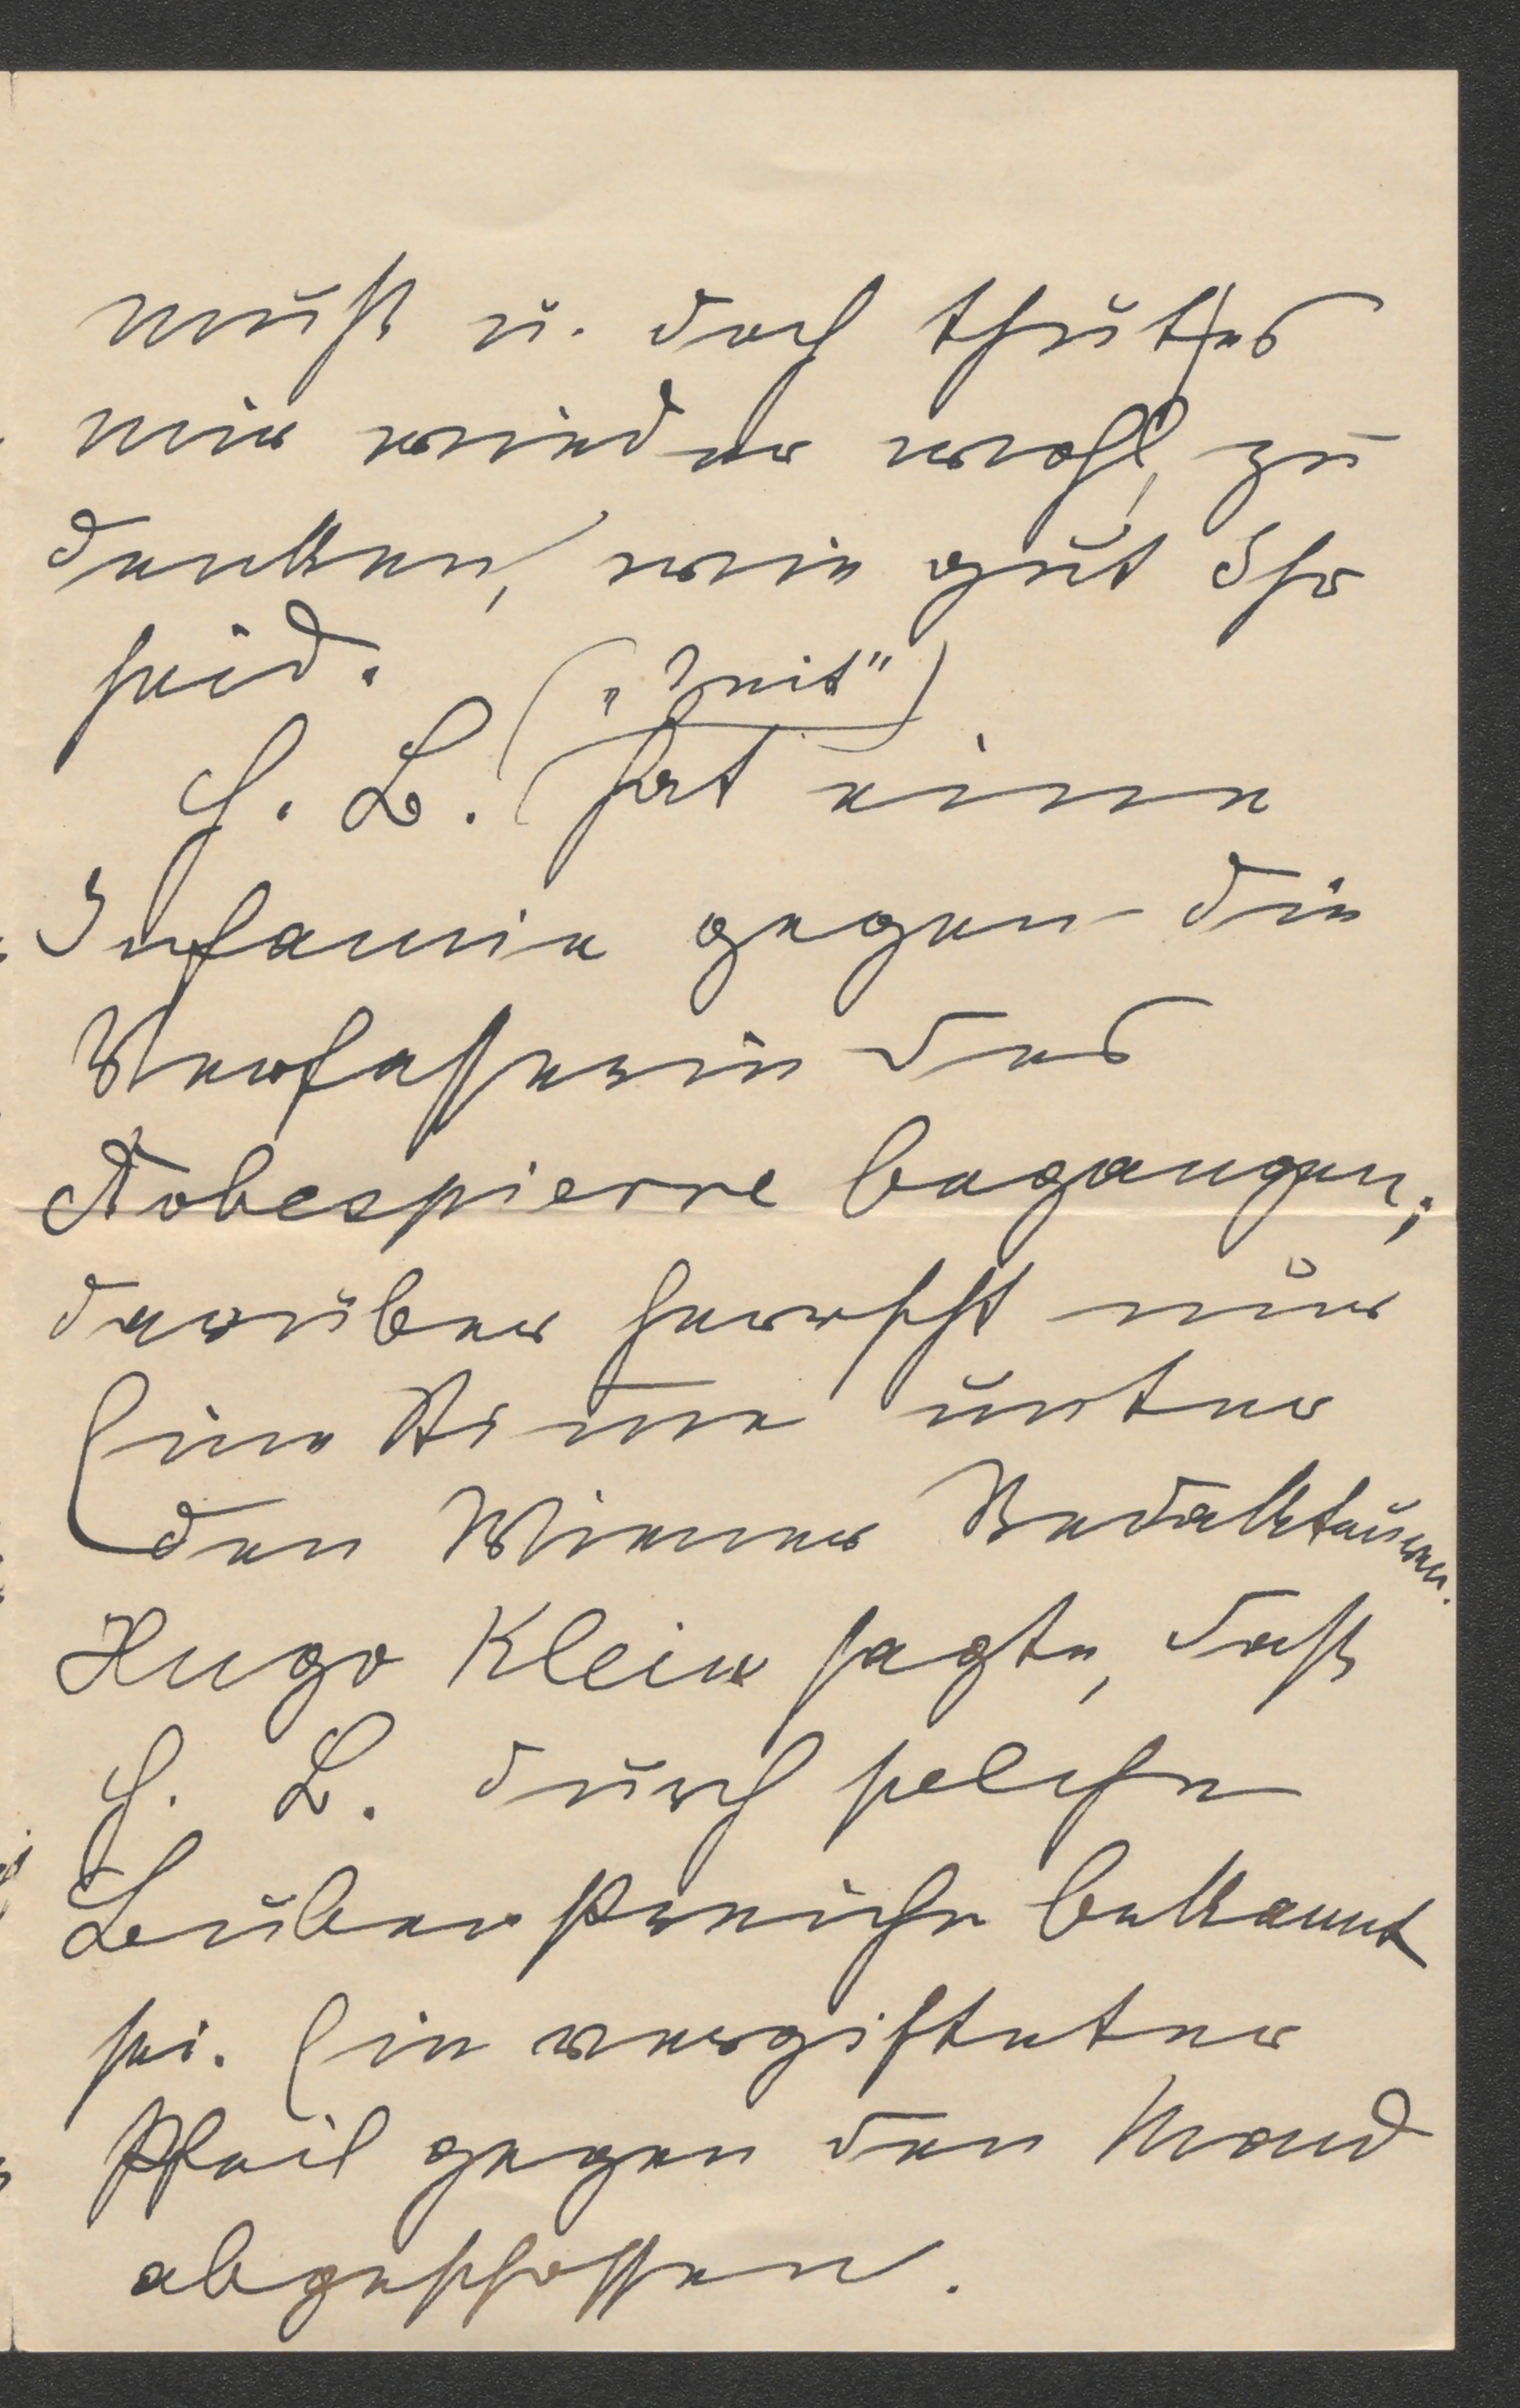 muß u. doch thut es
mir wieder wohl, zu
denken, wie gut Ihr
seid.
("Zeit")
H. L. hat eine
Infamie gegen die
Verfasserin des
Robespierre begangen;
darüber herrscht nur
Eine Stimme unter
den Wiener Redakteuren.
Hugo Klein sagte, daß
H. L. durch solche
Bubenstreiche bekannt
sei. Ein vergifteter
Pfeil gegen den Mond
abgeschossen.